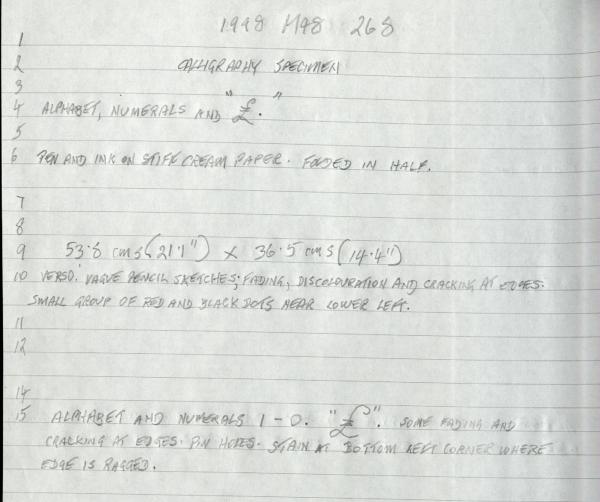 1998 M98 268
1
2 CALLIGRAPHY SPECIMEN
3
4 ALPHABET, NUMERALS AND "£."
5
6 PEN AND INK ON STIFF CREAM PAPER. FOLDED IN HALF.
7
8
9 53.8 cms (21.1") x 36.5 cms (14.4")
10 VERSO. VAGUE PENCIL SKETCHES; FADING, DISCOLOURATION AND CRACKING AT EDGES.
SMALL GROUP OF RED AND BLACK DOTS NEAR LOWER LEFT.
11
12
14
15 ALPHABET AND NUMERALS 1 - 0. "£". SOME FADING AND
CRACKING AT EDGES. PIN HOLES. STAIN AT BOTTOM LEFT CORNER WHERE
EDGE IS RAGGED.